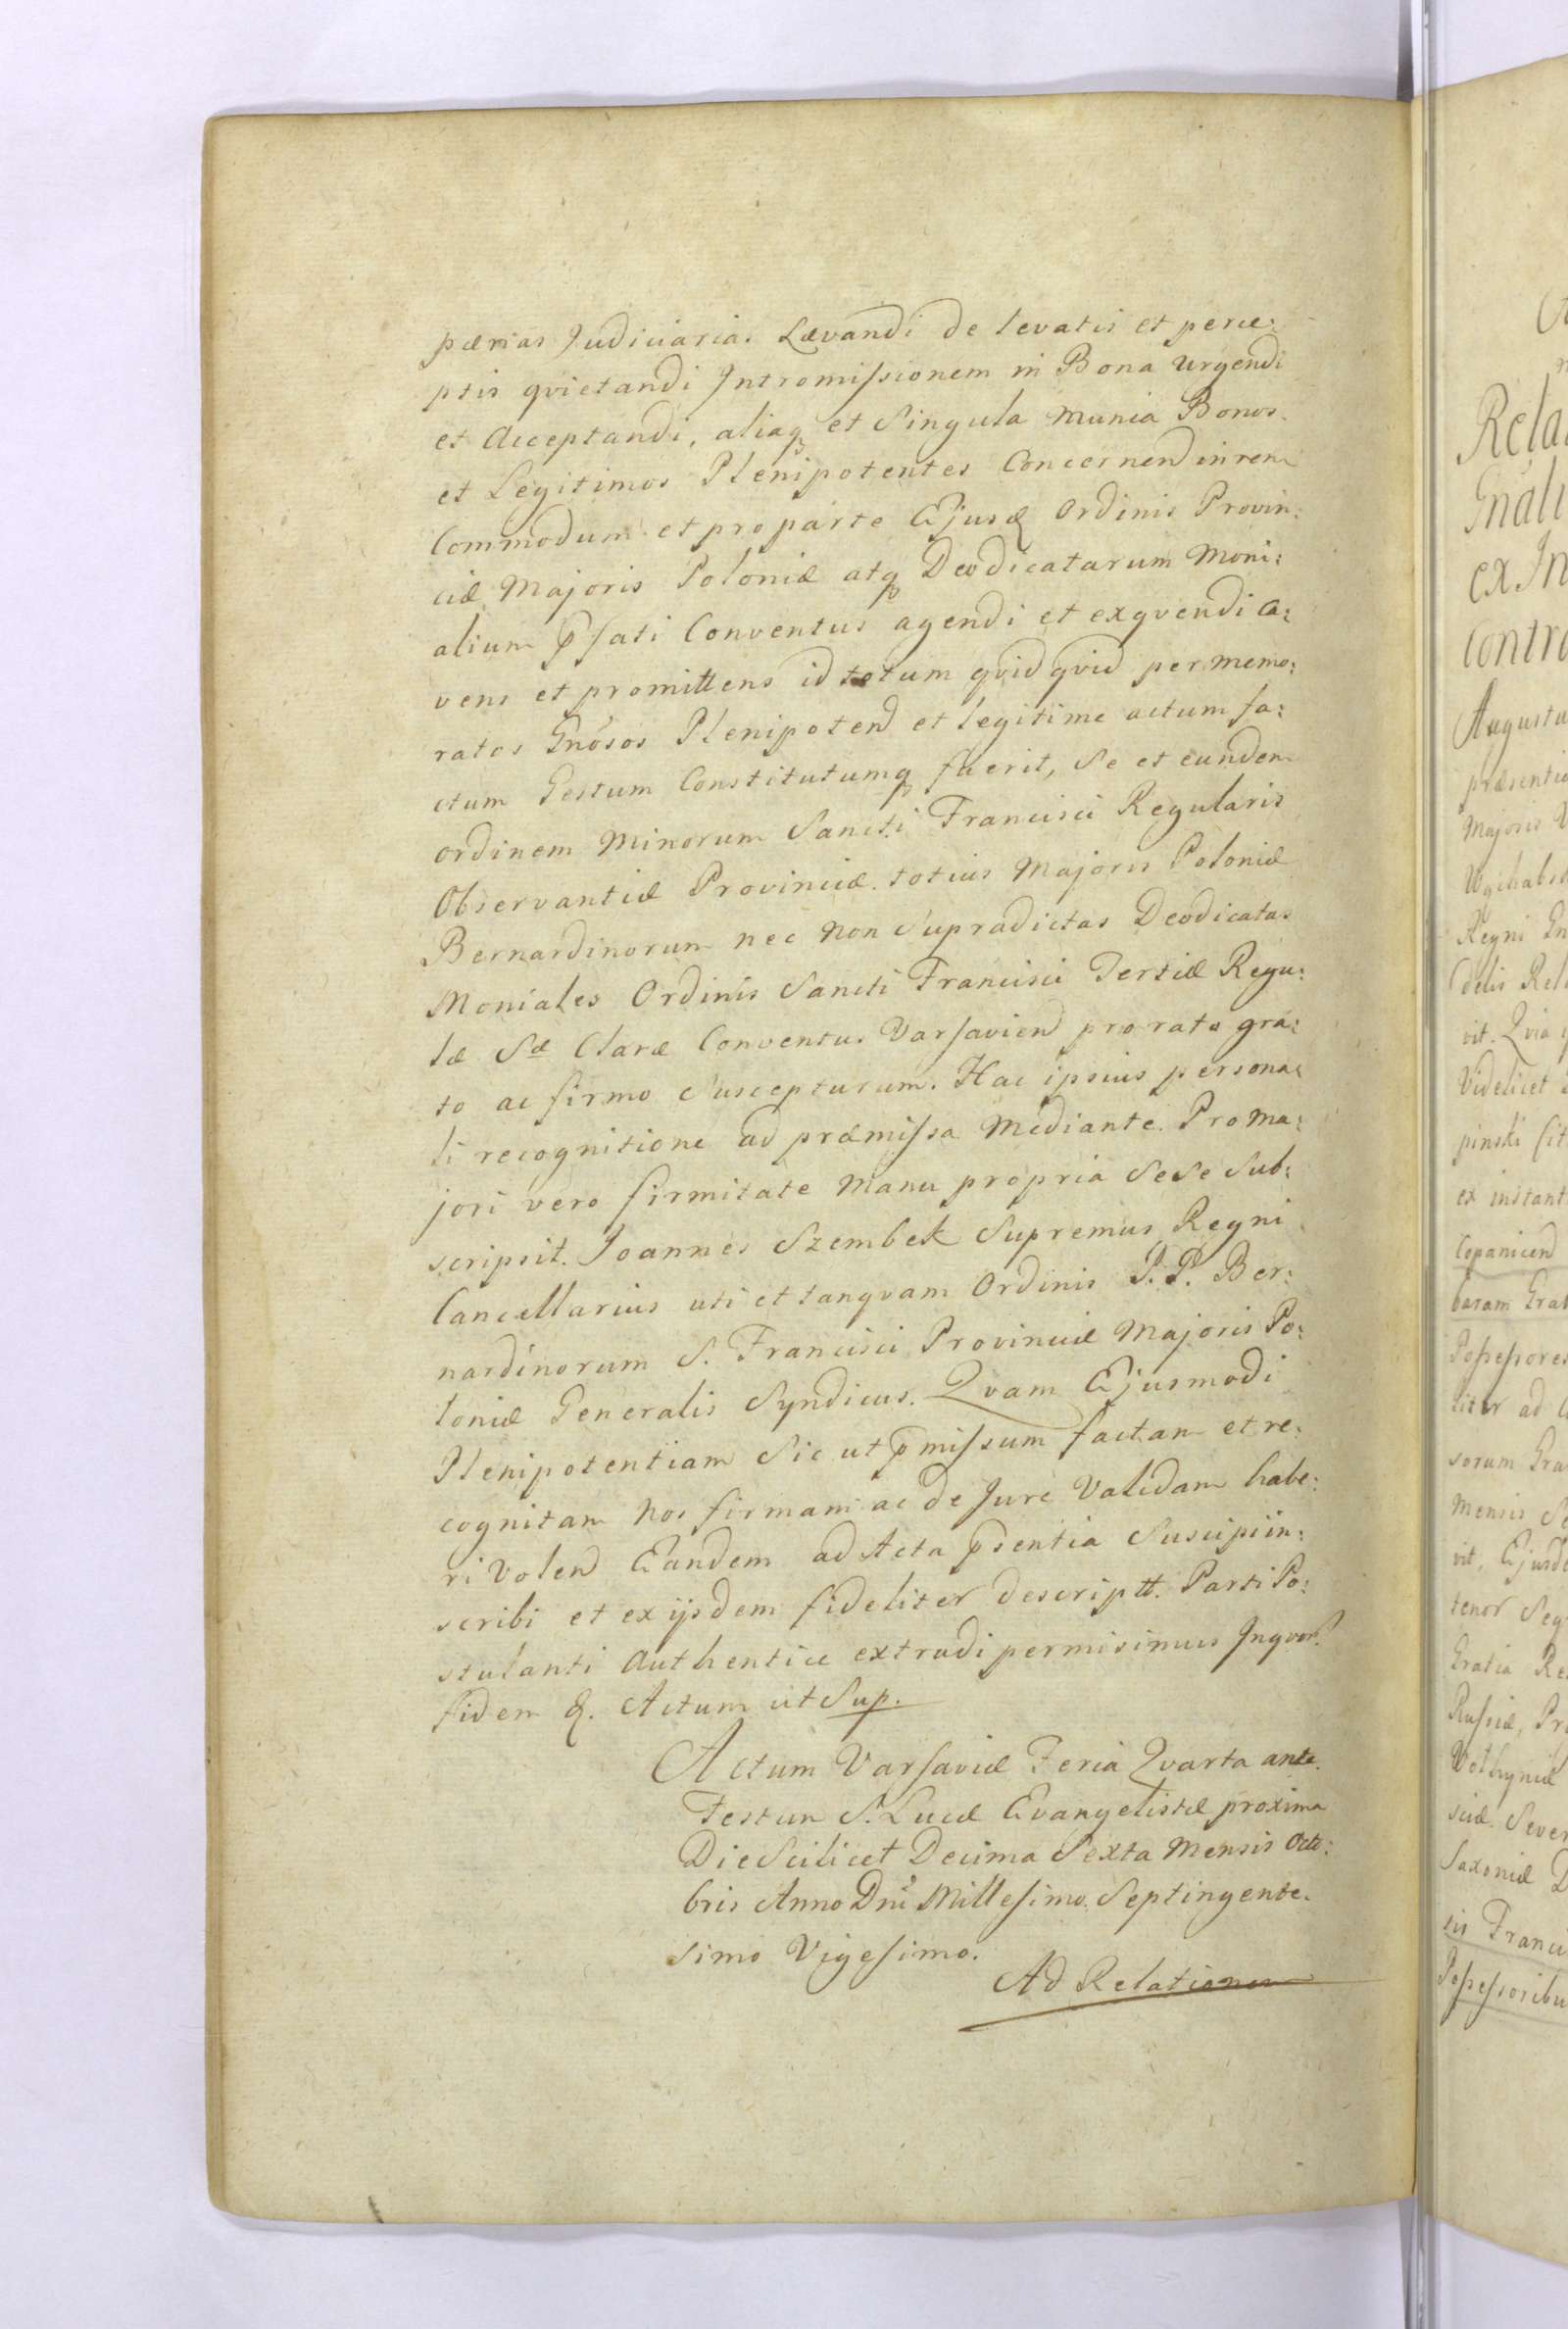 pænas Judiciarias Lævandi de levatis et perce:
ptis qvietandi Intromissionem in Bona Urgendi
et Acceptandi, aliaq et Singula munia Bonos
et Legitimos Plenipotentes Concernend in rem
Commodum et pro parte Ejusd Ordinis Provin:
ciæ Majoris Poloniæ atq Deodicatarum Moni:
alium p̄fati Conventus agendi et exqvendi ca:
vens et promittens id totum qvid qvid per memo:
ratos Gnōsos Plenipotend et legitime actum fa:
ctum Gestum Constitutumq fuerit, Se et eundem
ordinem Minorum Sancti Francisci Regularis
Observantiæ Provinciæ totius Majoris Poloniæ
Bernardinorum nec non Supradictas Deodicatas
Moniales Ordinis Sancti Francisci Tertiæ Regu:
læ Sæ Claræ Conventus Varsaviend pro rato gra:
to ac firmo Suscepturum. Hac ipsius persona:
li recognitione ad præmissa Mediante. Pro ma:
jori vero firmitate Manu propria Sese Sub:
scripsit. Joannes Szembek Supremus Regni
Cancellarius uti et tanqvam Ordinis P.P. Ber:
nardinorum S. Francisci Provinciæ Majoris Po:
loniæ Generalis Syndicus. Qvam Ejusmodi
Plenipotentiam Sic ut p̄missum factam et re:
cognitam Nos firmam ac de Jure Validam habe:
ri Volend Eandem ad Acta p̄sentia Suscipi in:
scribi et ex ijsdem fideliter descriptt. Parti Po:
stulanti Authentice extradi permisimus Inqvor.
fidem &. Actum ut Sup.
Actum Varsaviæ Feria Qvarta ante
Festum S. Lucæ Evangelistæ proxima
Die Scilicet Decima Sexta Mensis Octo:
bris Anno Dni Millesimo Septingente.
simo Vigesimo.
Ad Relationem
Rela
Gnāli
ex In
Contra
Augustu
præsentia
Majoris
Regni
delis Rel
vit. Qvia
Videlicet
pinski sit
ex instant
Copanicend
baram Grat
Possessores
liter ad
sorum Gra
Mensis Se
vit, Ejusde
tenor Seq
Gratia Re
Russiæ, Pr
Volhyniæ
sciæ Sever
Saxoniæ D
sis Franci
Possessoribu